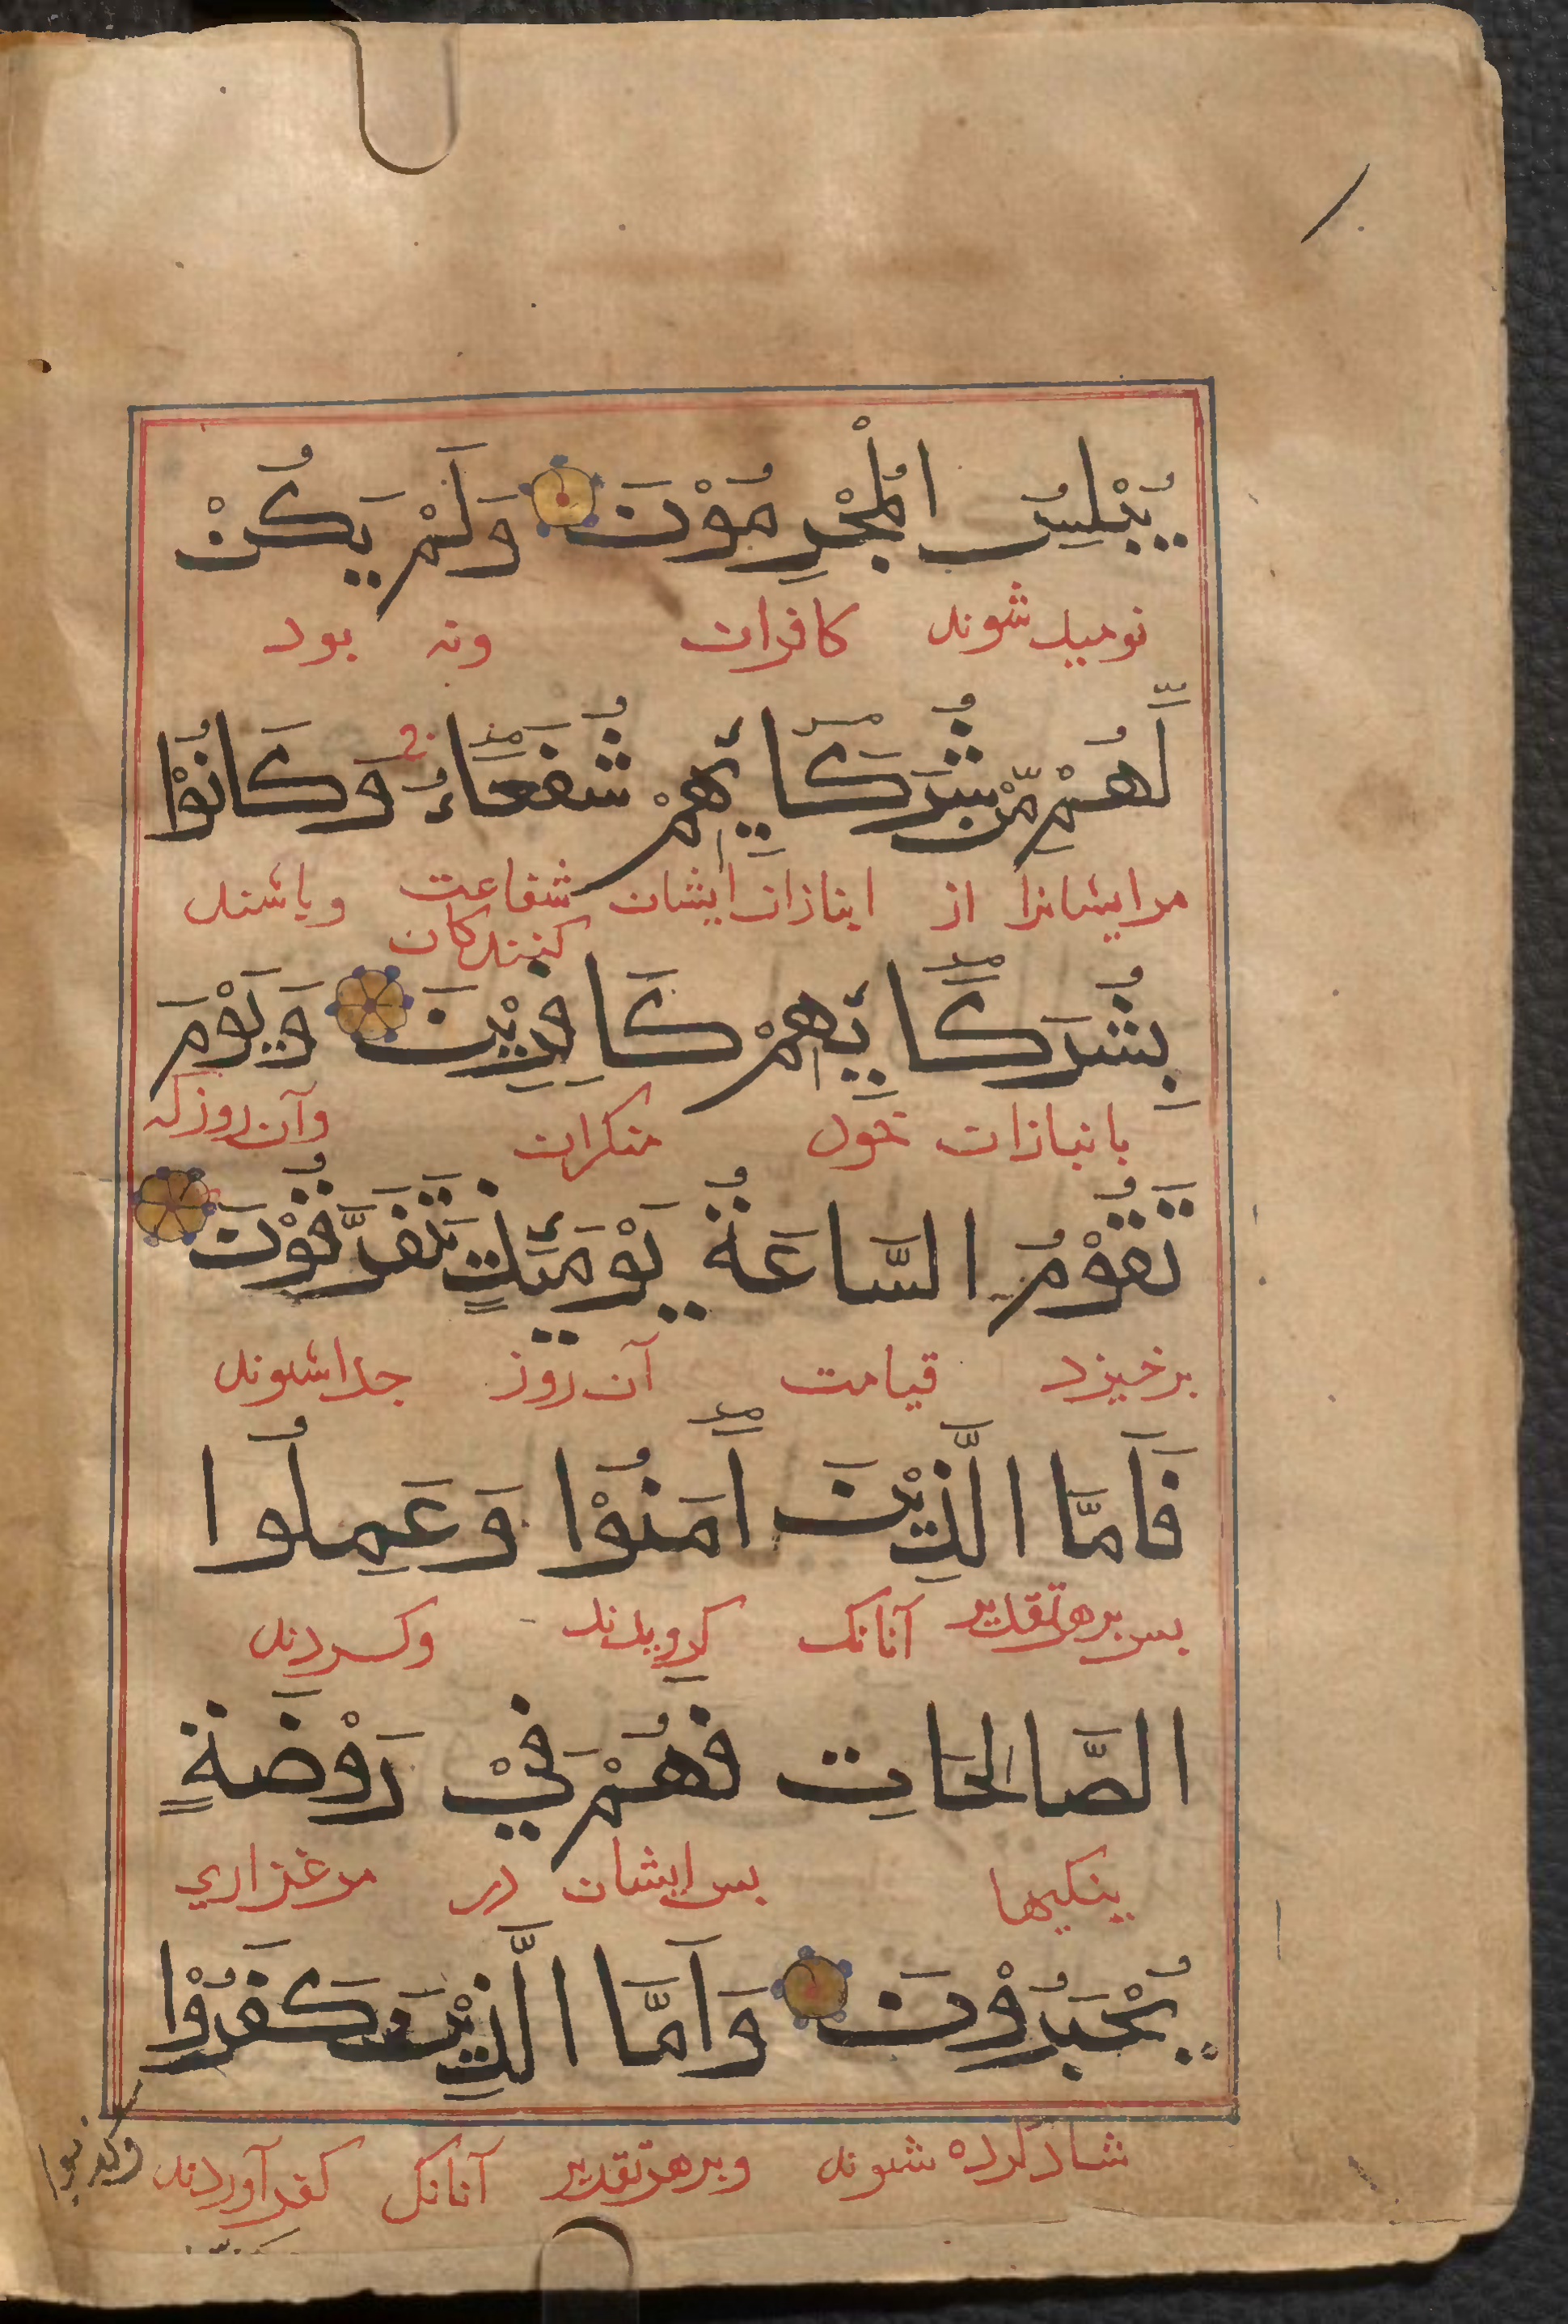 يُبْلِسُ الْمُجْرِمُوْنَ وَلَمْ يَكُنْ
نومید شوند کافران ونه بود
لَّهُمْ مِّنْ شُرَكَائِهِمْ شُفَعَاءُ وَكَانُوْا
مرایشانرا از انبازان ایشان شفاعت وباشند
کنندکان
بِشُرَكَائِهِمْ كَافِرِيْنَ وَيَوْمَ
بانبازان خود منکران وآن روز که
تَقُوْمُ السَّاعَةُ يَوْمَئِذٍ يَتَفَرَّقُوْنَ
برخیزد قیامت آن روز جدا شوند
فَاَمَّا الَّذِيْنَ اٰمَنُوْا وَعَمِلُوا
بس برهرتقدیر آنانک کرویدند وکردند
الصَّالِحَاتِ فَهُمْ فِيْ رَوْضَةٍ
بنکیها بس ایشان در مرغزاری
يُحْبَرُوْنَ وَاَمَّا الَّذِيْنَ كَفَرُوْا
شاد کرده شوند وبرهرتقدیر آنانک کفر آوردند
وكذبوا